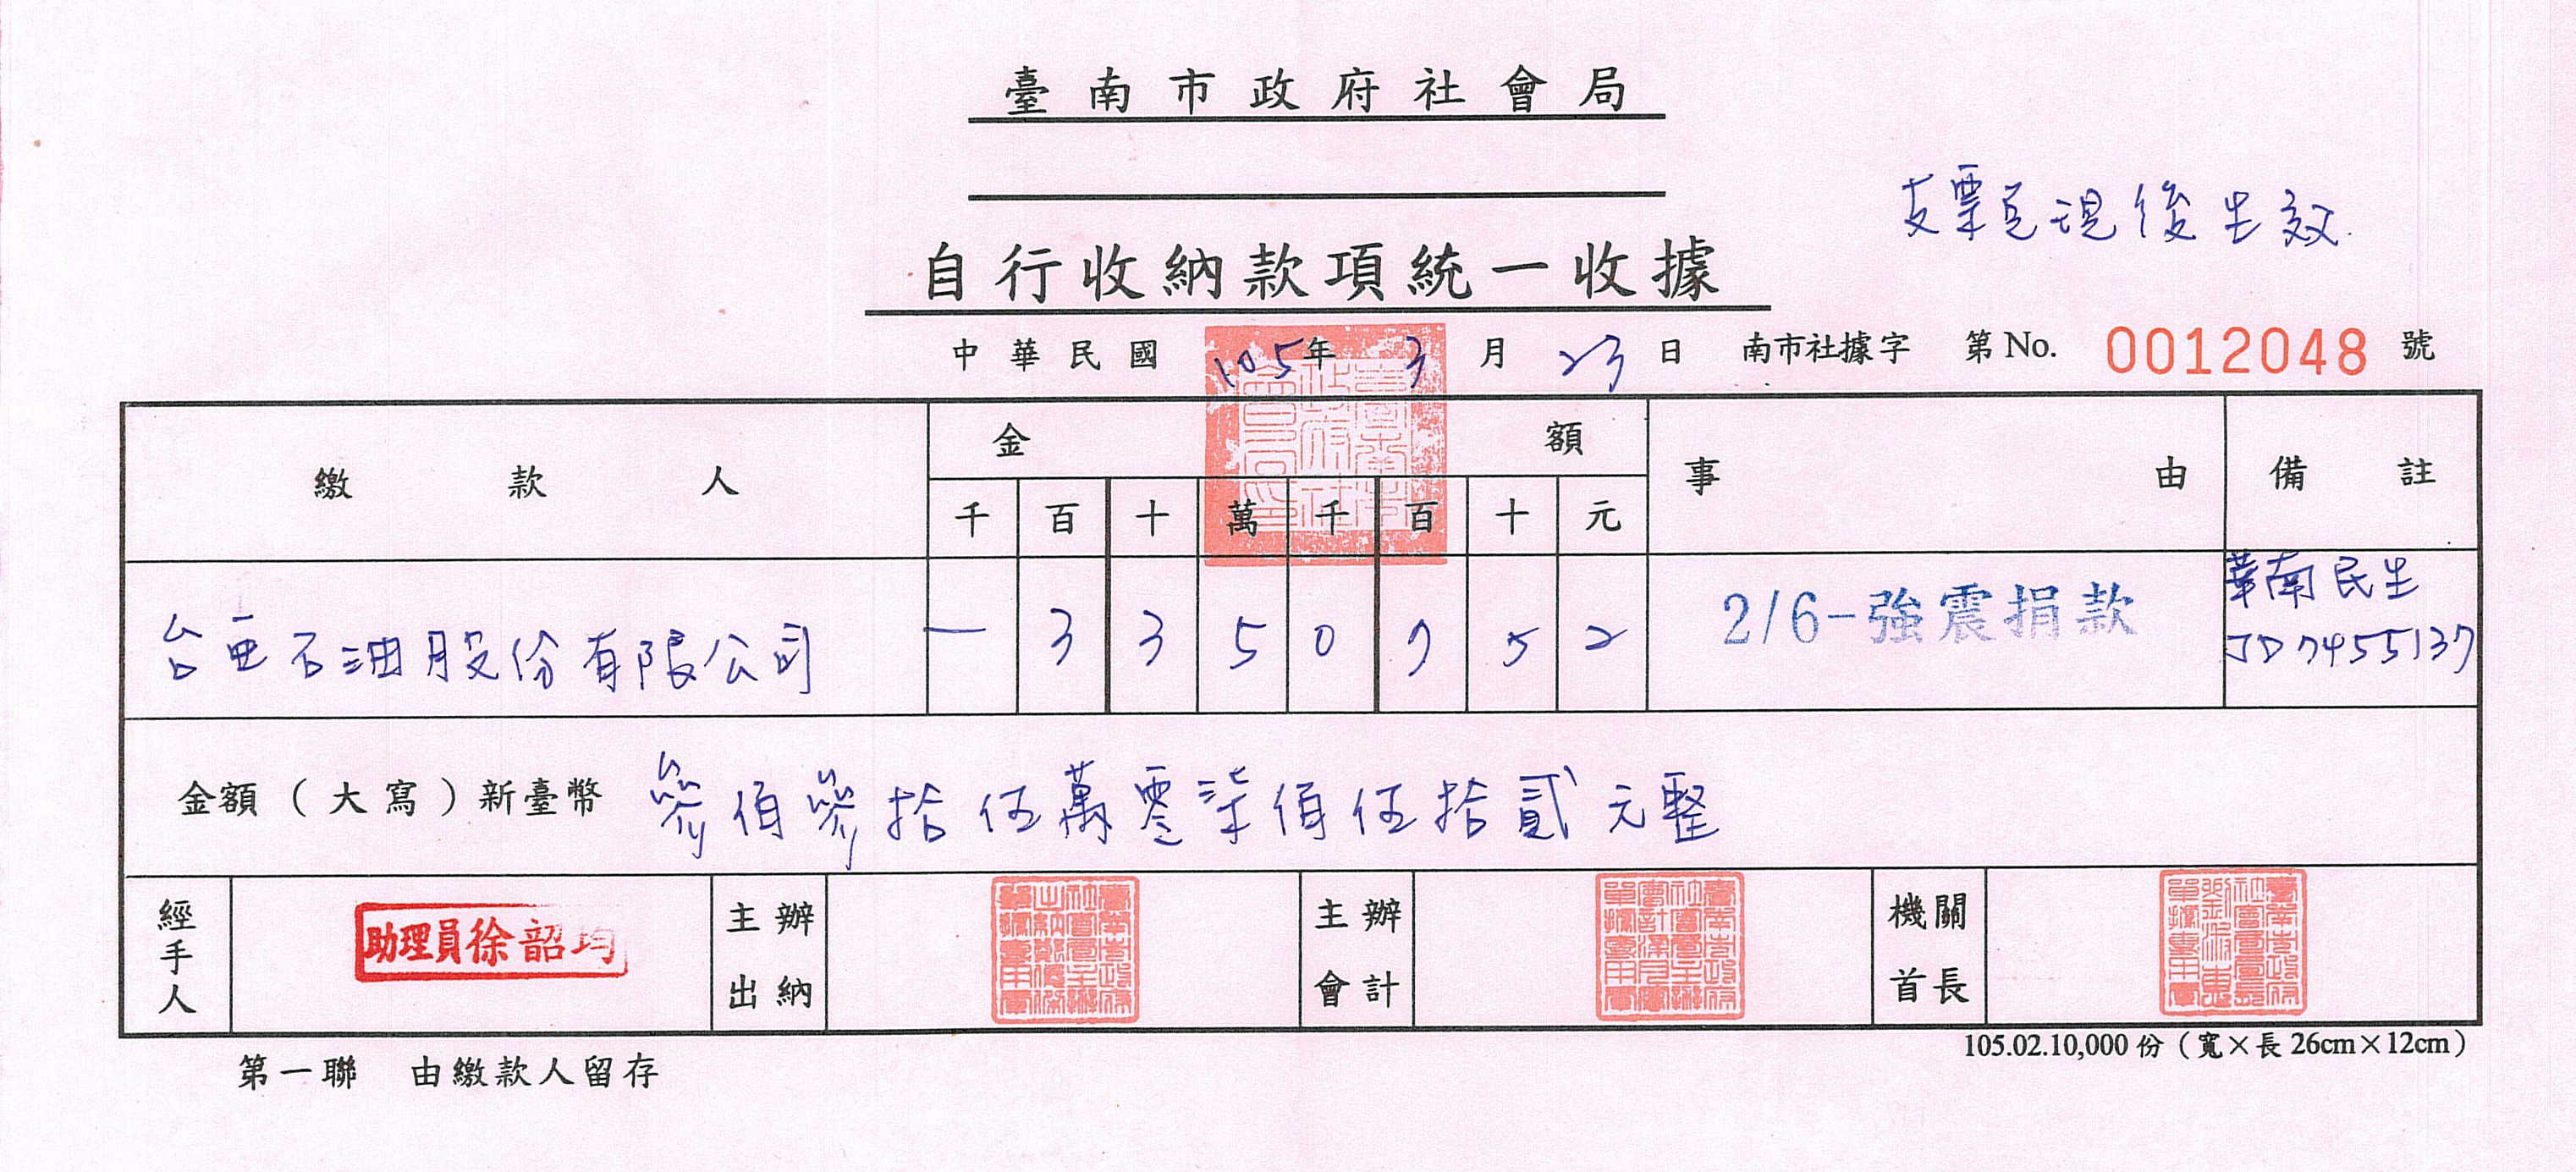 臺南市政府社會局
支票兌現後生效
自行收納款項統一收據
中華民國 105 年 3 月 23 日 南市社據字 第No. 0012048 號
繳款人 金額 事由 備註
千 百 十 萬 千 百 十 元
台亞石油股份有限公司 一 3 3 5 0 7 5 2 2/6-強震捐款 華南民生
JD7455137
金額(大寫)新臺幣 參佰參拾伍萬零柒佰伍拾貳元整
經手人 助理員徐韶均 主辦出納 主辦會計 機關首長
105.02.10,000份(寬×長26cm×12cm)
第一聯 由繳款人留存